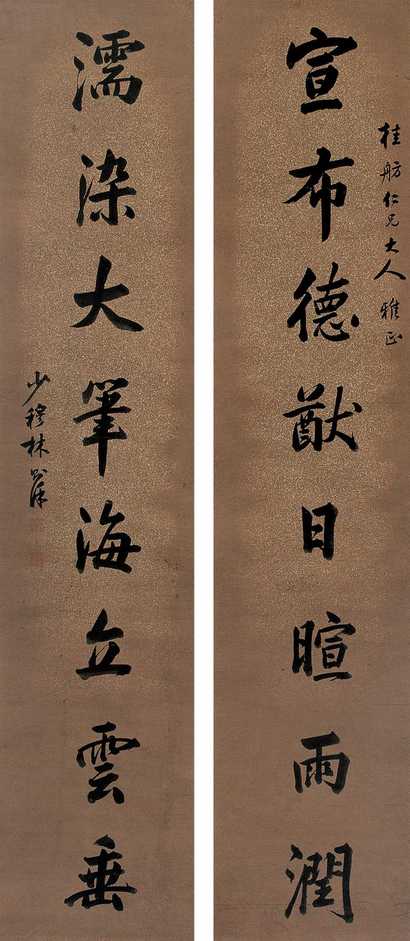 桂舫仁兄大人雅正
宣布德猷日暄雨潤
濡染大筆海立雲垂
少穆林則徐